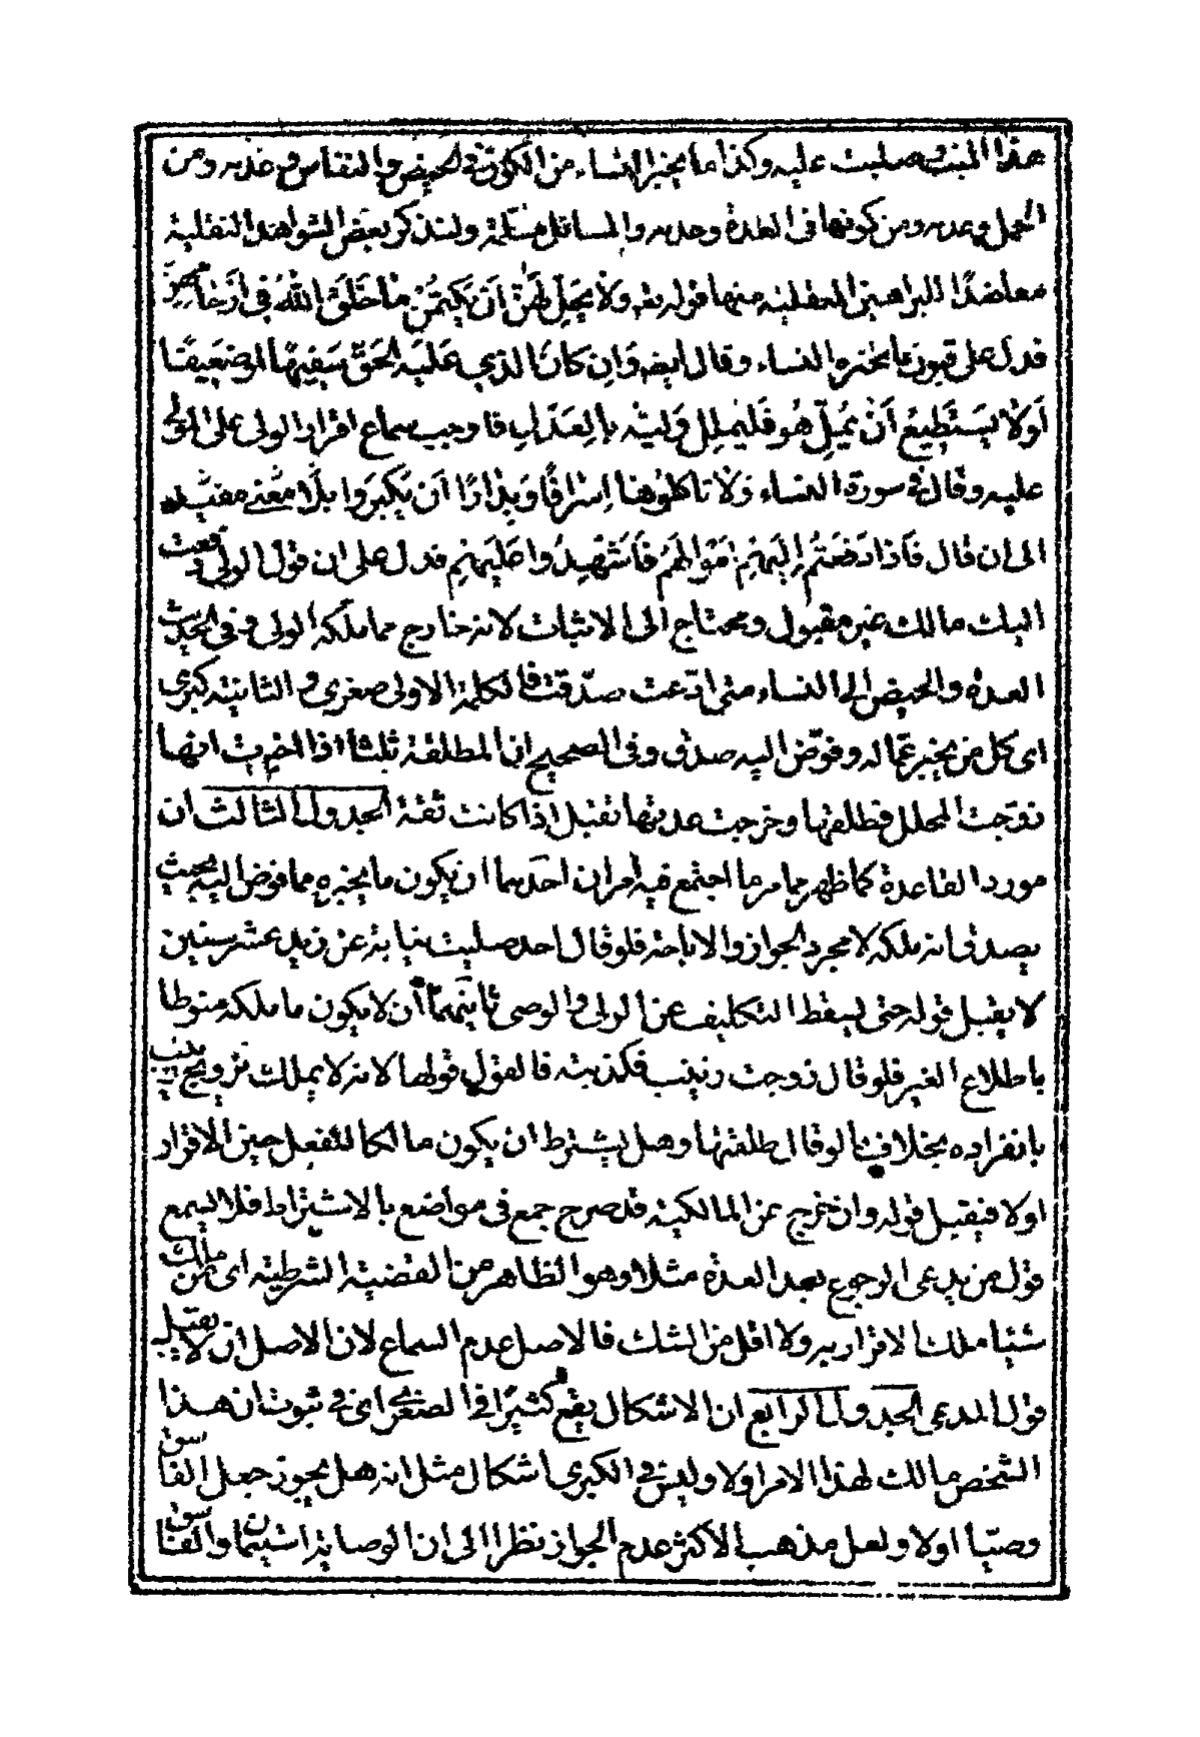 هذا الميت صليت عليه وكذا ما يخبر النساء من الكون في الحيض والنفاس وعدمه ومن
الحمل وعدمه ومن كونها في العدة وعدمه والمسائل مسلمة ولنذكر بعض الشواهد النقلية
معاضدا للبراهين العقلية منها قوله تعه وَلَا يَحِلُّ لَهُنَّ اَنْ يَكْتُمْنَ مَا خَلَقَ اللهُ فِي اَرْحَامِهِنَّ
فدل على قبول ما يخبره النساء وقال ايضه وَاِن كَانَ الذي عَلَيْهِ الحَقُّ سَفِيهًا اَو ضَعِيفًا
اَوْلَا يَسْتَطِيعُ اَنْ يُمِلَّ هُوَ فَلْيُمْلِل وَلِيُّهُ بِالعَدْلِ فاوجب سماع اقرار الولى على المولى
عليه وقال في سورة النساء وَلَا تاكلوها اِسْرَافًا وَبِدَارًا اَن يَكْبَرُوا
الى ان قال فَاذا دَفَعْتُم اِلَيْهِمْ اَمْوَالَهُمْ فَاَشْهِدُوا عَلَيْهِمْ فدل على ان قول الولى دفعت
اليك مالك غير مقبول ومحتاج الى الاثبات لانه خارج مما ملكه الولى وفى الحديث
العدة والحيض الى النساء متى ادّعت صدّقت فالكلمة الاولى صغرى والثانية كبرى
اى كل من يخبر عمّا له وفوّض اليه صدق وفى الصحيح ان المطلقة ثلثا اذا اخبرت انها
تزوّجت المحلل فطلقها وخرجت عدتها تقبل اذا كانت ثقة الجدول الثالث ان
مورد القاعدة كما ظهر مما مر ما اجتمع فيه امران احدهما ان يكون ما يخبره مما فوض اليه بحيث
يصدق انه ملكه لا مجرد الجواز والاباحة فلو قال احد صليت نيابة عن زيد عشر سنين
لا يقبل قوله حتى يسقط التكليف عن الولى والوصى ثانيهما ان لا يكون ما ملكه منوطا
باطلاع الغير فلو قال زوجت زينب فكذبته فالقول قولها لانه لا يملك تزويج زينب
بانفراده بخلاف ما لو قال طلقتها وهل يشترط ان يكون مالكا للفعل حين الاقرار
اولا فيقبل قوله وان خرج عن المالكية قد صرح جمع فى مواضع بالاشتراط فلا يسمع
قول من يدعى الرجوع بعد العدة مثلا وهو الظاهر من القضية الشرطية اى من مالك
شيئا ملك الاقرار به ولا اقل من الشك فالاصل عدم السماع لان الاصل ان لا يقبل
قول المدعى الجدول الرابع ان الاشكال يقع كثيرا فى الصغرى اى فى ثبوت ان هذا
الشخص مالك لهذا الامر اولا وليس فى الكبرى اشكال مثل انه هل يجوز جعل الفاسق
وصيّا اولا ولعل مذهب الاكثر عدم الجواز نظرا الى ان الوصاية استيمان والفاسق